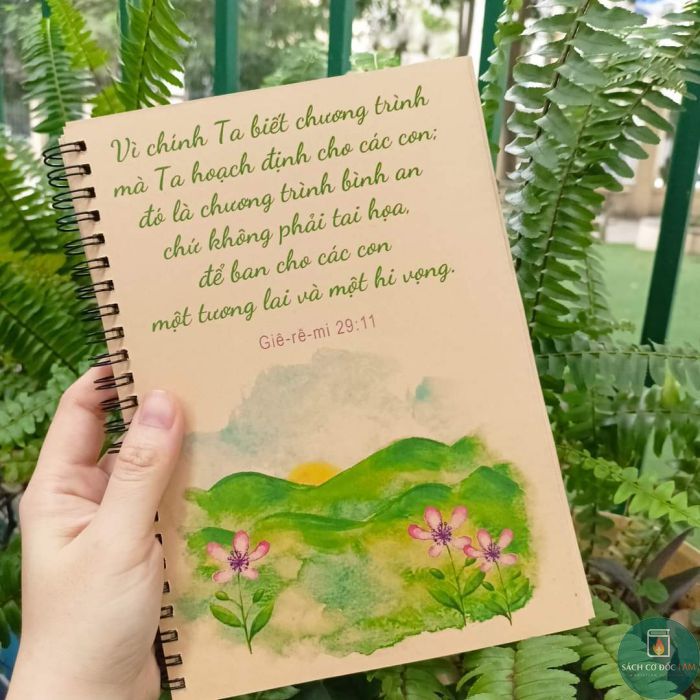 Vì chính Ta biết chương trình
mà Ta hoạch định cho các con;
đó là chương trình bình an
chứ không phải tai họa,
để ban cho các con
một tương lai và một hi vọng.
Giê-rê-mi 29:11
SÁCH CƠ ĐỐC